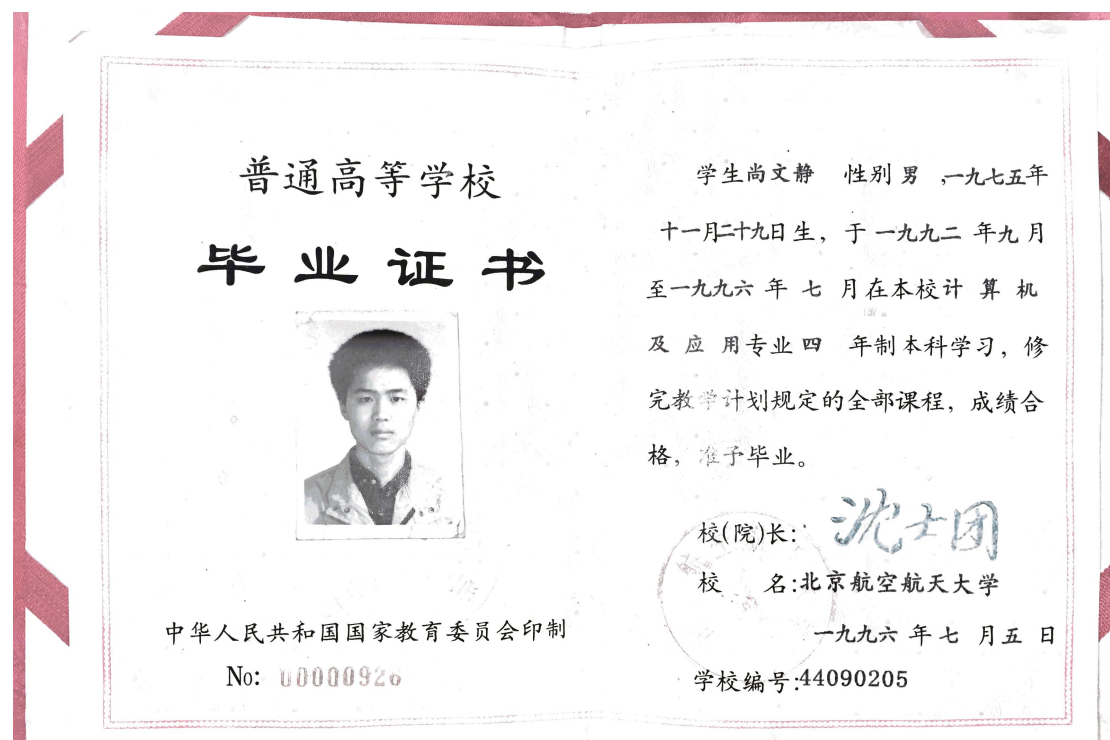 普通高等学校
毕业证书
中华人民共和国国家教育委员会印制
No: 00000926
学生尚文静 性别男,一九七五年
十一月二十九日生，于一九九二年九月
至一九九六年七月在本校计算机
及应用专业四年制本科学习，修
完教学计划规定的全部课程，成绩合
格，准予毕业。
校(院)长: 沈士团
校 名:北京航空航天大学
一九九六年七月五日
学校编号:44090205